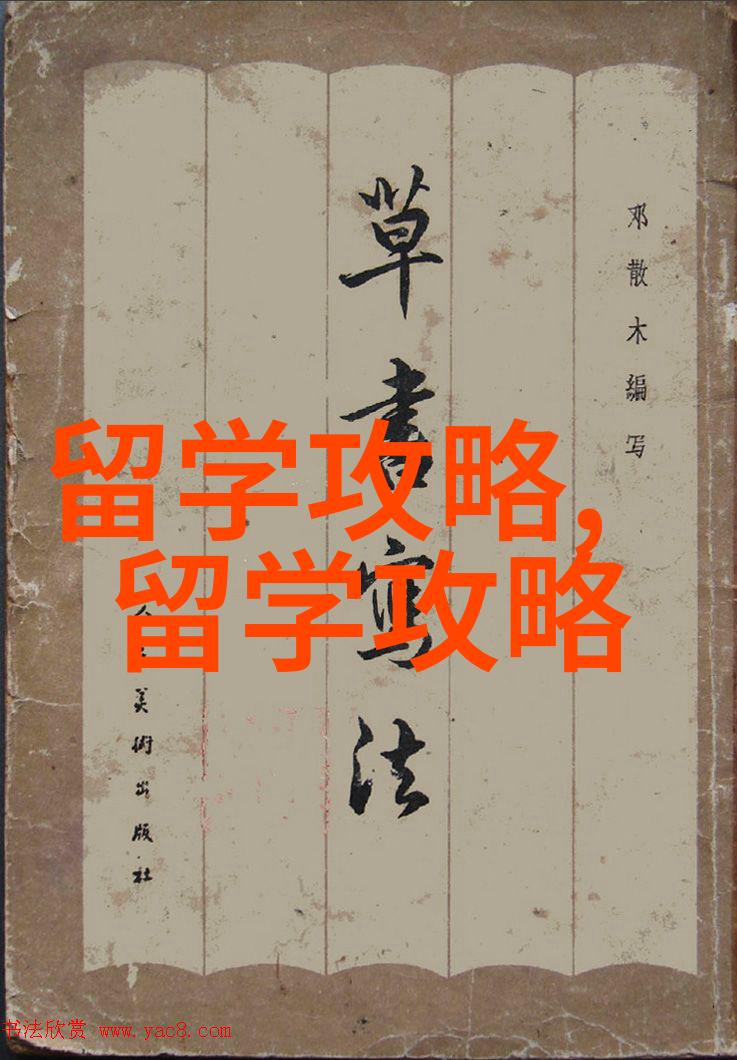 留学攻略,
留学攻略
草书写法
邓散木编写
美術出版社
书法欣赏 www.yac8.com